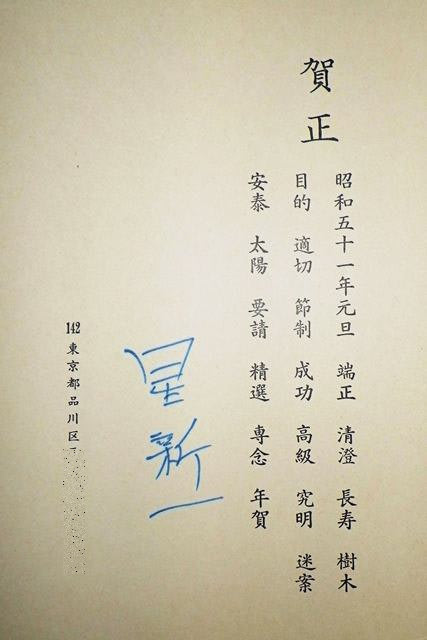 賀正
昭和五十一年元旦 端正 清澄 長寿 樹木
目的 適切 節制 成功 高級 究明 迷案
安泰 太陽 要請 精選 専念 年賀
星新一
142 東京都品川区